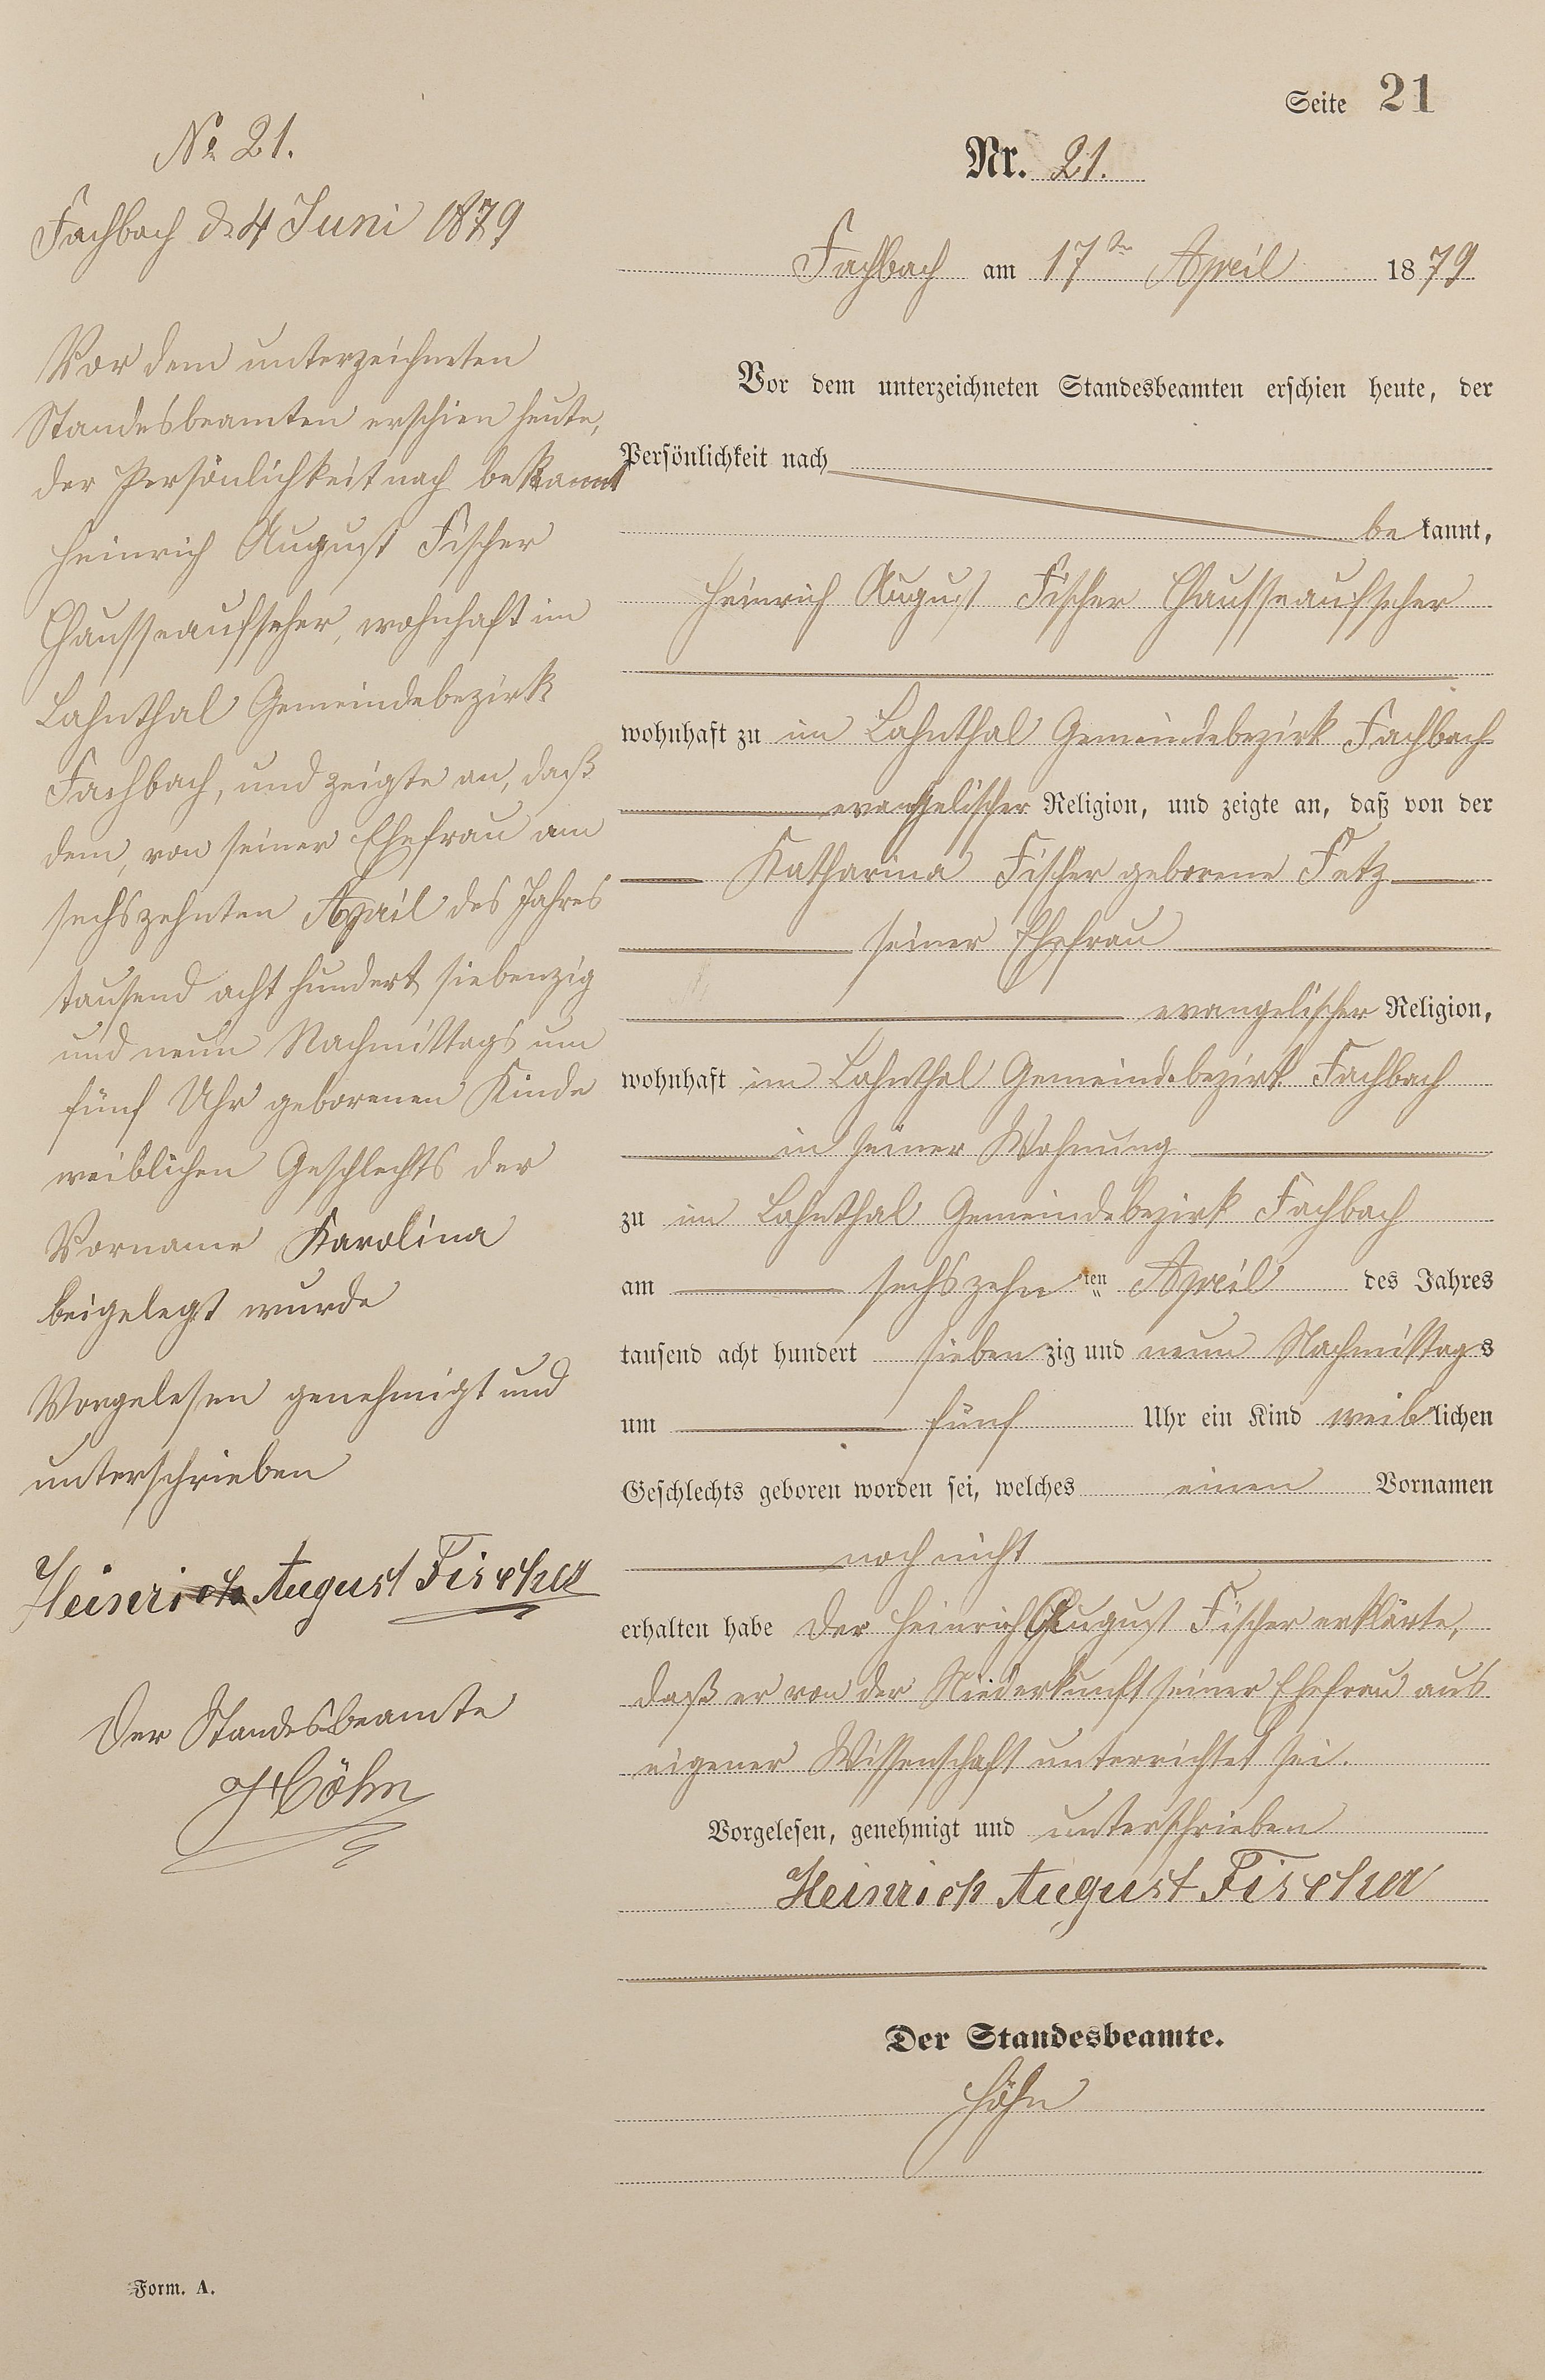 Seite 21
Nr. 21.
Fachbach am 17ten April 1879
Vor dem unterzeichneten Standesbeamten erschien heute, der
Persönlichkeit nach
bekannt,
Heinrich August Fischer Chausseaufseher
wohnhaft zu im Lahnthal Gemeindebezirk Fachbach
evangelischer Religion, und zeigte an, daß von der
Katharina Fischer geborene Fetz
seiner Ehefrau
evangelischer Religion,
wohnhaft im Lahnthal Gemeindebezirk Fachbach
in seiner Wohnung
zu im Lahnthal Gemeindebezirk Fachbach
am sechszehnten April des Jahres
tausend acht hundert siebenzig und neun Nachmittags
um fünf Uhr ein Kind weiblichen
Geschlechts geboren worden sei, welches einen Vornamen
noch nicht
erhalten habe Der Heinrich August Fischer erklärte,
daß er von der Niederkunft seiner Ehefrau aus
eigener Wissenschaft unterrichtet sei.
Vorgelesen, genehmigt und unterschrieben
Heinrich August Fischer
Der Standesbeamte.
Höhn
No 21.
Fachbach d. 4 Juni 1879
Vor dem unterzeichneten
Standesbeamten erschien heute,
der Persönlichkeit nach bekannt
Heinrich August Fischer
Chausseaufseher, wohnhaft im
Lahnthal Gemeindebezirk
Fachbach, und zeigte an, daß
dem, von seiner Ehefrau am
sechszehnten April des Jahres
tausend acht hundert siebenzig
und neun Nachmittags um
fünf Uhr geborenen Kinde
weiblichen Geschlechts der
Vorname Karolina
beigelegt wurde
Vorgelesen genehmigt und
unterschrieben
Heinrich August Fischer
Der Standesbeamte
Höhn
Form. A.